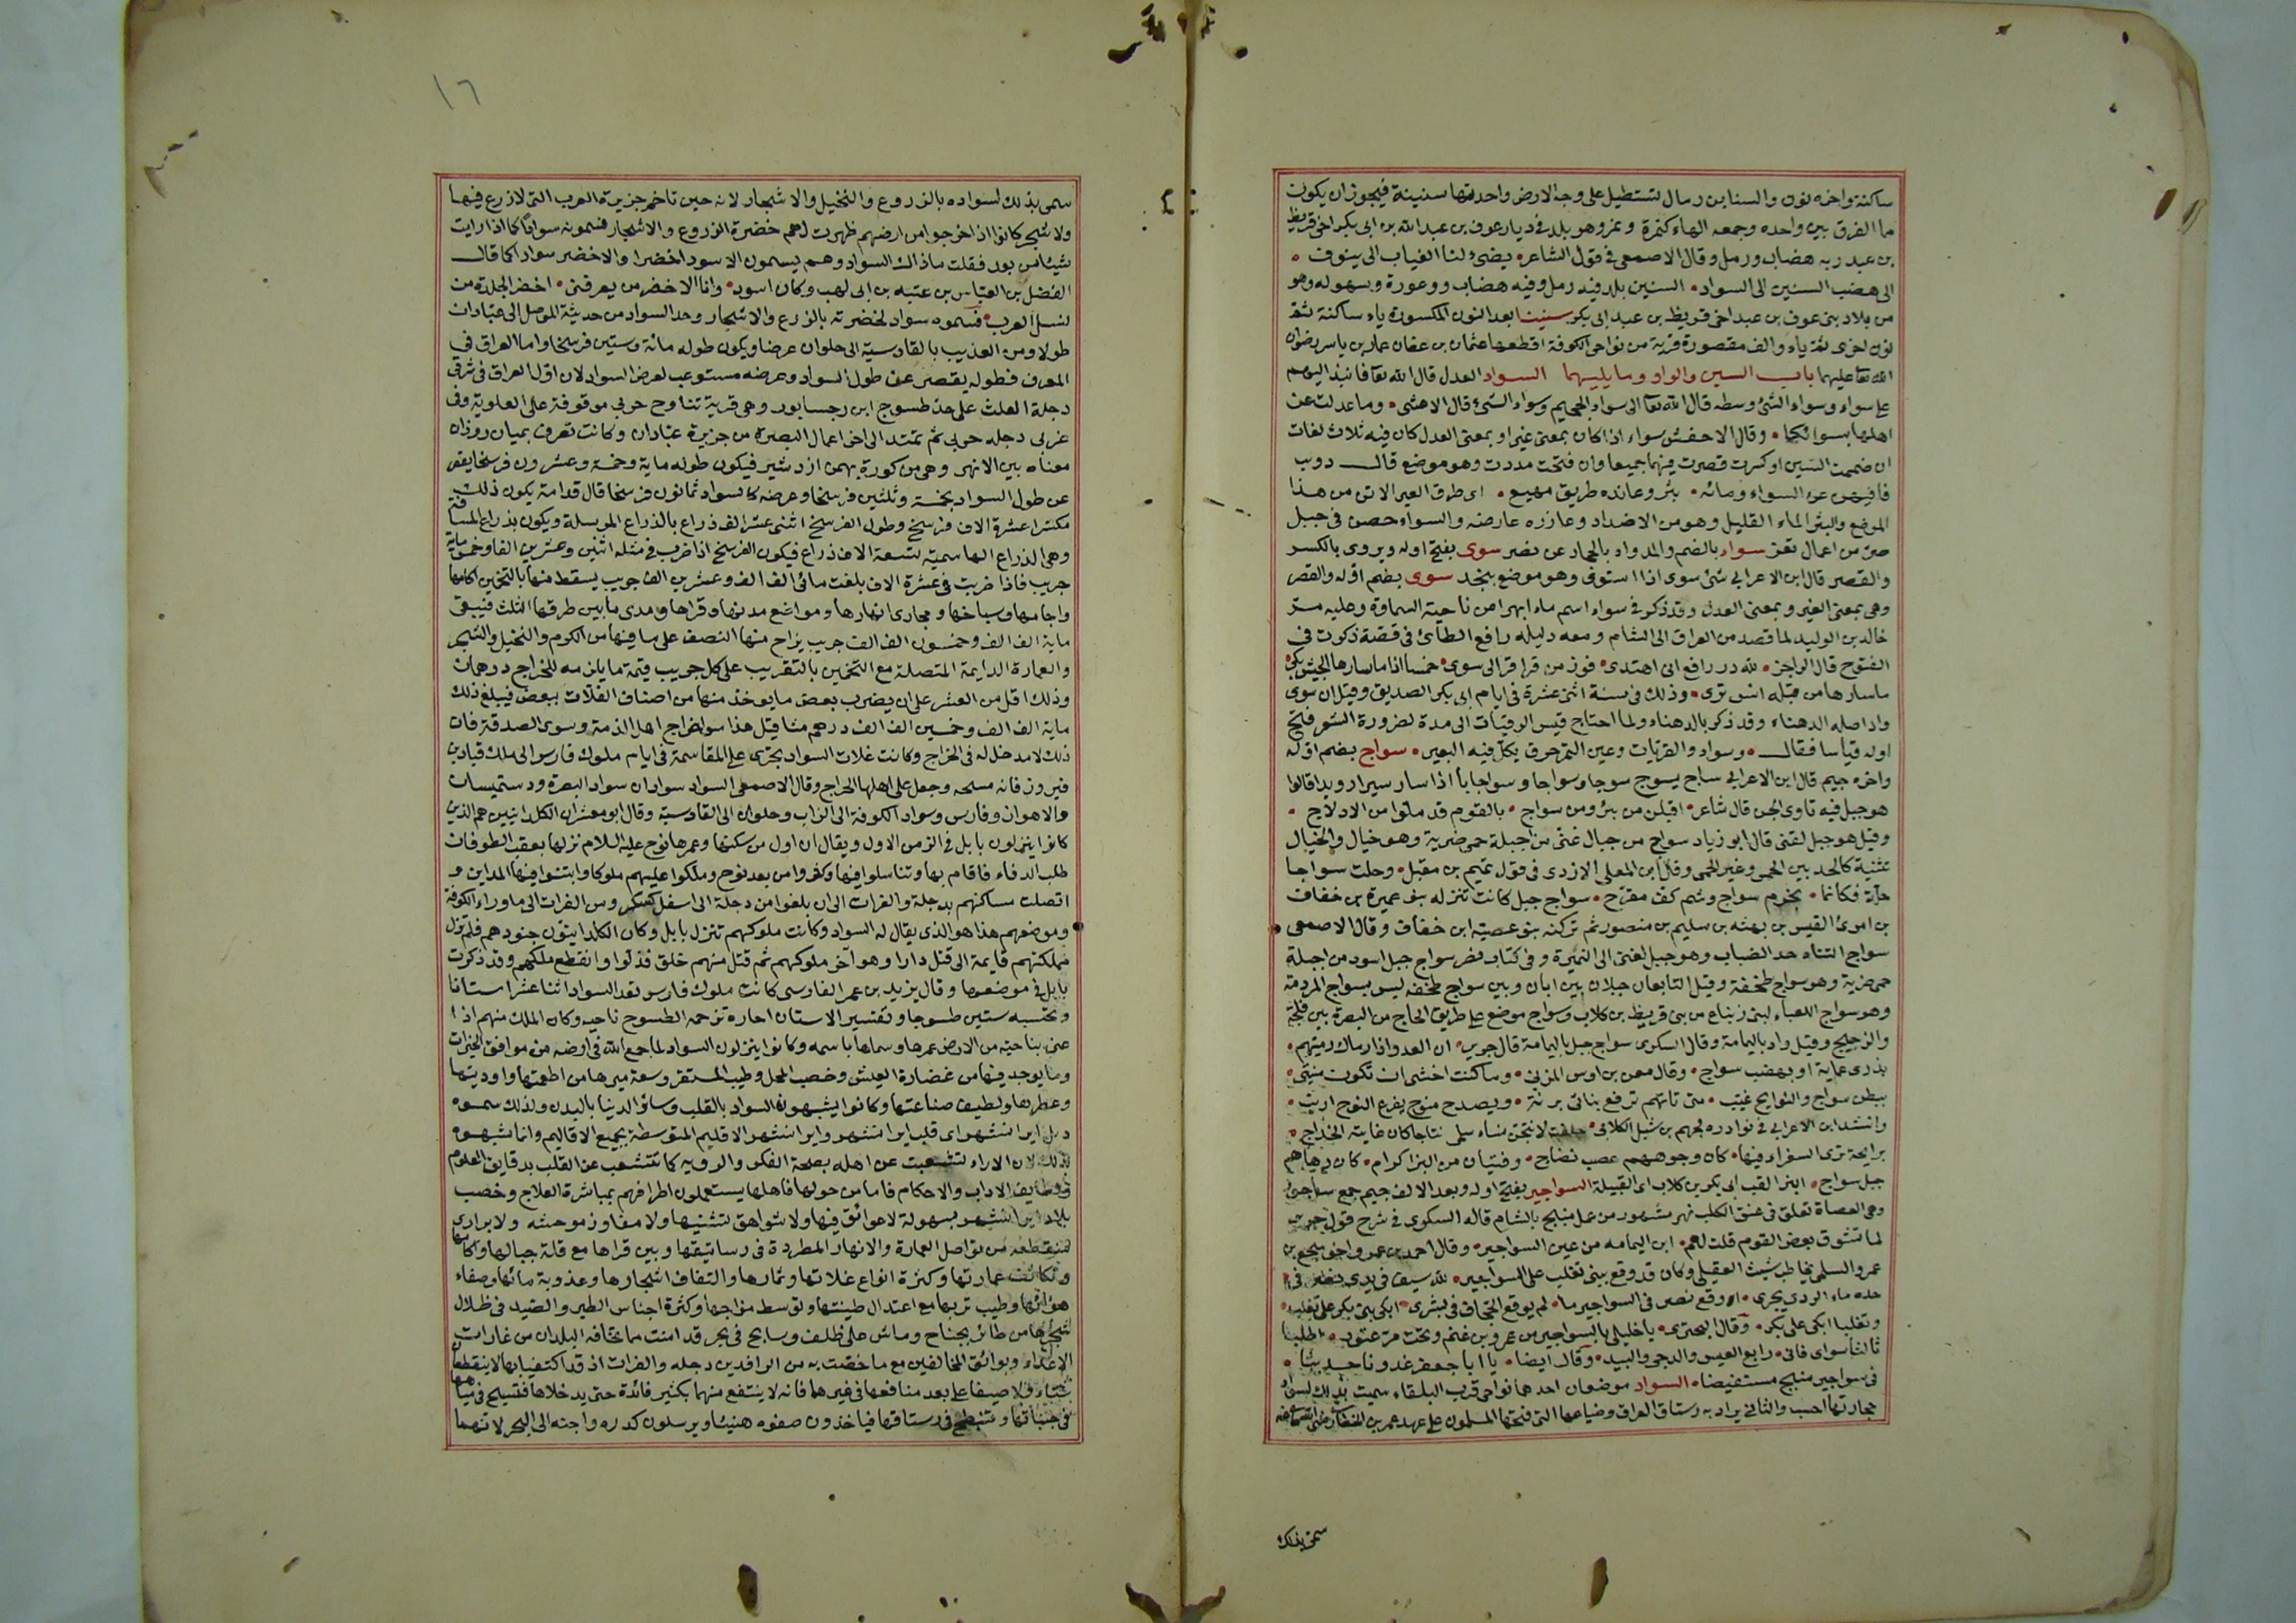 ساكنة واخره نون والسنابن رمال تستطيل على وجه الارض واحدتها سنينة فيجوز ان يكون
مما الفرق بين واحده وجمعه الهاء كتمرة وتمر وهو بلد فى ديار عوف بن عبد الله بن ابى بكر اخى قريظ
بن عبد ربه هضاب ورمل وقال الاصمعى فى قول الشاعر يضئ لنا الغياب الى ينوف
الى هضب السنين الى السواد السنين بلد فيه رمل وفيه هضاب ووعورة وسهوله وهو
من بلاد بنى عوف بن عبد اخى قريظ بن عبد ابى بكر سنينيا بعد النون المكسورة ياء ساكنة ثم
نون اخرى ثم ياء والف مقصورة قرية من نواحى الكوفة اقطعها عثمان بن عفان عمار بن ياسر رضوان
الله تعا عليهما باب السين والواو وما يليهما السواء العدل قال الله تعا فانبذ اليهم
على سواء وسواء الشئ وسطه قال الله تعا الى سواء الجحيم وسواء الشئ قال الاعشى وما عدلت عن
اهلها بسوائكا وقال الاخفش سواء اذا كان بمعنى غير او بمعنى العدل كان فيه ثلاث لغات
ان ضممت السين او كسرت قصرت فيهما جميعا وان فتحت مددت وهو موضع قال
فافتنهن عن السواء ومائه بثر وعانده طريق مهيع اى طرق العير الاتن من هذا
الموضع والبثر الماء القليل وهو من الاضداد وعانده عارضه والسواء حصن فى جبل
صبر من اعمال تعز سواد بالضم والمد واد بالحجاز عن نصر سوى بفتح اوله ويروى بالكسر
والقصر قال ابن الاعرابي شئ سوى اذا استوفى وهو موضع بنجد سوى بضم اوله والقصر
وهى بمعنى الغير وبمعنى العدل وقد ذكر فى سواء اسم ماء لبهراء من ناحية السماوة وعليه مر
خالد بن الوليد لما قصد من العراق الى الشام ومعه دليله رافع الطائى فى قصة ذكرت فى
الفتوح قال الراجز لله در رافع انى اهتدى فوز من قراقر الى سوى خمسا اذا ما سارها الجيش بكى
ما سارها من قبله انس ترى وذلك فى سنة اثنى عشرة فى ايام ابى بكر الصديق وقيل ان سوى
واد اصله الدهناء وقد ذكر بالدهناء ولما احتاج قيس الرقيات الى مدة لضرورة الشعر فتح
اوله قياسا فقال وسواء والقريات وعين التمر حرق يكل فيه البعير سواج بضم اوله
واخره جيم قال ابن الاعرابي ساج يسوج سوجا وسواجا وسواجانا اذا سار سيرا رويدا قالوا
هو جبل فيه تاوى الجن قال شاعر اقبلن من بئر ومن سواج بالقوم قد ملوا من الادلاج
وقيل هو جبل لغنى قال ابو زياد سواج من جبال غنى من اجبلة حمى ضرية وهو خيال والخيال
تثنية كالحد بين الحمى وغير الحمى وقال ابن المعلى الازدى فى قول تميم بن مقبل وحلت سواجا
حلة فكانما بحزم سواج وشم كف مقرح سواج جبل كانت تنزله بنو عميرة بن خفاف
بن امرئ القيس بن بهثه بن سليم بن منصور ثم تركته بنو عصية ابن خفاف وقال الاصمعى
سواج التناء حد الضباب وهو جبل لغنى الى النميرة وفى كتاب نصر سواج جبل اسود من اجبلة
حمى ضرية وهو سواج طخفة وقيل التابعان جبلان بين ابان وبين سواج طخفه ليس بسواج المردمة
وهو سواج اللعباء لبنى زنباع من بنى قريظ بن كلاب وسواج موضع على طريق الحاج من البصرة بين فلجة
والزجيج وقيل واد باليمامة وقال السكرى سواج جبل باليمامة قال جرير ان العدو اذا رماك رميتهم
بذرى عماية او بهضب سواج وقال معن بن اوس المزنى وما كنت اخشى ان تكون منيتى
ببطن سواج والنوايح غيب متى تاتهم ترفع بناتى برنة ويصدح منوح يفرع النوح ارنب
وانشد ابن الاعرابي فى نوادره لجهم بن شبل الكلابى حلفت لانتجن نساء سلمى نتاجا كان غايته الخداج
برايحة ترى السفراء فيها كان وجوههم عصب نضاج وفتيان من البزا كرام كان زهاءهم
جبل سواج ابنرا لقب ابى بكر بن كلاب اى القبيلة السواجير بفتح اوله وبعد الالف جيم جمع ساجور
وهى العصاة تعلق فى عنق الكلب نهر مشهور من عمل منبج بالشام قاله السكرى فى شرح قول جرير
لما تشوق بعض القوم قلت لهم ابن اليمامه من عين السواجير وقال احمد بن عمرو اخو سجع بن
عمرو السلمى يخاطب شيث العقيلى وكان قد وقع ببنى تغلب على السواجير لله سيف فى يدى نصر فى
حده ماء الردى يجرى اوقع نصر فى السواجير ما لم يوقع الجحاف فى بشرى ابكى بنى بكر على تغلب
وتغلبا ابكى على بكر وقال البحترى يا خليلى بالسواجير من عمرو بن غنم وبحتر من عتود اطلبا
ثالثا سواى فانى رابع العيس والدجى والبيد وقال ايضا يا ابا جعفر غدونا حديثا
فى سواجير منبج مستفيضا السواد موضعان احدهما نواحى قرب البلقاء سميت بذلك لسواد
حجارتها احسب والثانى يراد به رستاق العراق وضياعها التى فتحها المسلمون على عهد عمر بن الخطاب رضى الله تعا عنه
سمى بذلك
١٦
سمى بذلك لسواده بالزروع والنخيل والاشجار لانه حين تاخم جزيرة العرب التى لازرع فيها
ولا شجر كانوا اذا خرجوا من ارضهم ظهرت لهم خضرة الزروع والاشجار فيسمونه سوادا كما اذا رايت
شيئا من بعد فقلت ما ذاك السواد وهم يسمون الاسود اخضرا والاخضر سوادا كما قال
الفضل بن العباس بن عتبه بن ابى لهب وكان اسود وانا الاخضر من يعرفنى اخضر الجلدة من
نسل العرب فسموه سواد لخضرته بالزرع والاشجار وحد السواد من حديثة الموصل الى عبادان
طولا ومن العذيب بالقادسية الى حلوان عرضا ويكون طوله مائة وستين فرسخا واما العراق فى
العرف فطوله يقصر عن طول السواد وعرضه مستوعب لعرض السواد لان اول العراق فى شرقى
دجلة العلث على حد طسوج ابن رجسابور وهى قرية تناوح حربى موقوفة على العلوية وفى
غربى دجله حربى ثم تمتد الى اخر اعمال البصرة من جزيرة عبادان وكانت تعرف بميان روذان
معناه بين الانهر وهى من كورة بهمن ازدشير فيكون طوله ماية وخمسة وعشرون فرسخا يقصر
عن طول السواد بخمسة وثلثين فرسخا وعرضه كالسواد ثمانون فرسخا قال قدامة يكون ذلك
مكسرا عشرة الاف فرسخ وطول الفرسخ اثنى عشر الف ذراع بالذراع المرسلة ويكون بذراع المساحة
وهى الذراع الهاشمية تسعة الاف ذراع فيكون الفرسخ اذا ضرب فى مثله اثنين وعشرين الفا وخمسماية
جريب فاذا ضربت فى عشرة الاف بلغت مائى الف الف وعشرين الف جريب يسقط منها بالتخمين اكامها
واجامها وسباخها ومجارى انهارها ومواضع مدنها وقراها ومدى ما بين طرقها الثلث فيبقى
ماية الف الف وخمسون الف الف جريب يراح منها النصف على ما فيها من الكروم والنخيل والشجر
والعمارة الدايمة المتصلة مع التخمين بالتقريب على كل جريب قيمة ما يلزمه للخراج درهمان
وذلك اقل من العشر على ان يضرب بعض ما يوخذ منها من اصناف الغلات ببعض فيبلغ ذلك
ماية الف الف وخمسين الف الف درهم مثاقيل هذا سوى خراج اهل الذمة وسوى الصدقة فان
ذلك لا مدخل له فى الخراج وكانت غلات السواد يجرى على المقاسمة فى ايام ملوك فارس الى ملك قباد بن
فيروز فانه مسحه وجعل على اهلها الخراج وقال الاصمعى السواد سوادان سواد البصرة ودستميسان
والاهواز وفارس وسواد الكوفة الى الزاب وحلوان الى القادسية وقال ابو معشر ان الكلدانيين هم الذين
كانوا ينزلون بابل فى الزمن الاول ويقال ان اول من سكنها وعمرها نوح عليه السلام نزلها بعقب الطوفان
طلب الدفاء فاقام بها وتناسلوا فيها وكثروا من بعد نوح وملكوا عليهم ملوكا وابتنوا فيها المداين و
اتصلت مساكنهم بدجلة والفرات الى ان بلغوا من دجلة الى اسفل كسكر ومن الفرات الى ما وراء الكوفة
وموضعهم هذا هو الذى يقال له السواد وكانت ملوكهم تنزل بابل وكان الكلدانيون جنودهم فلم تزل
مملكتهم قايمة الى قتل دارا وهو آخر ملوكهم ثم قتل منهم خلق فذلوا وانقطع ملكهم وقد ذكرت
بابل فى موضعها وقال يزيد بن عمر الفارسى كانت ملوك فارس تعد السواد اثنا عشر استانا
وتحتسبه ستين طسوجا وتفسير الاستان احاره ترجمه الطسوج ناحيه وكان الملك منهم اذا
عنى بناحية من الارض عمرها وسماها باسمه وكانوا ينزلون السواد لما جمع الله فى ارضه من موافق الخيرات
وما يوجد فيها من غضارة العيش وخصب المحل وطيب المستقر وسعة ميرها من اطعمتها واوديتها
وعطرها ولطيف صناعتها وكانوا يشبهون السواد بالقلب وسائر الدنيا بالبدن ولذلك سموه
دل ايرانشهر اى قلب ايرانشهر وايرانشهر الاقليم المتوسطة بجميع الاقاليم وانما شبهوه
بذلك لان الاراء تشعبت عن اهله بصحة الفكر والرويه كما تتشعب عن القلب بدقايق العلوم
ولطايف الاداب والاحكام فاما من حولها فاهلها يستعملون اطرافهم بمباشرة العلاج وخصب
بلاد ايرانشهر بسهولة لا عوائق فيها ولا شواهق تشنيها ولا مفاوز موحشه ولا برارى
منقطعه من تواصل العمارة والانهار المطردة فى رساتيقها وبين قراها مع قلة جبالها واكامها
وتكاثف عمارتها وكثرة انواع غلاتها وثمارها والتفاف اشجارها وعذوبة مائها وصفاء
هوائها وطيب تربها مع اعتدال طينتها وتوسط مزاجها وكثرة اجناس الطير والصيد فى ظلال
شجرها من طائر بجناح وماش على ظلف وسابح فى بحر قد امنت مما تخافه البلدان من غارات
الاعداء وبوائق المخالفين مع ما خصت به من الرافدين دجله والفرات اذ قد اكتفيا بها لا ينقطعان
شتاء ولا صيفا على بعد منافعها فى غيرهما فانه لا ينتفع منهما بكثير فائدة حتى يدخلاها فتسيح فى مياهها
فى جنباتها وتنبطح فى رستاقها فياخذون صفوه هنيئا ويرسلون كدره واجنه الى البحر لانهما